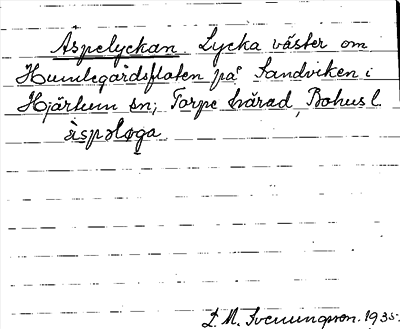 Aspelyckan. Lycka väster om
Humlegårdsflaten på Sandviken i
Hjärtum sn; Torpe härad, Bohusl.
L. M. Svenungsson. 1935.